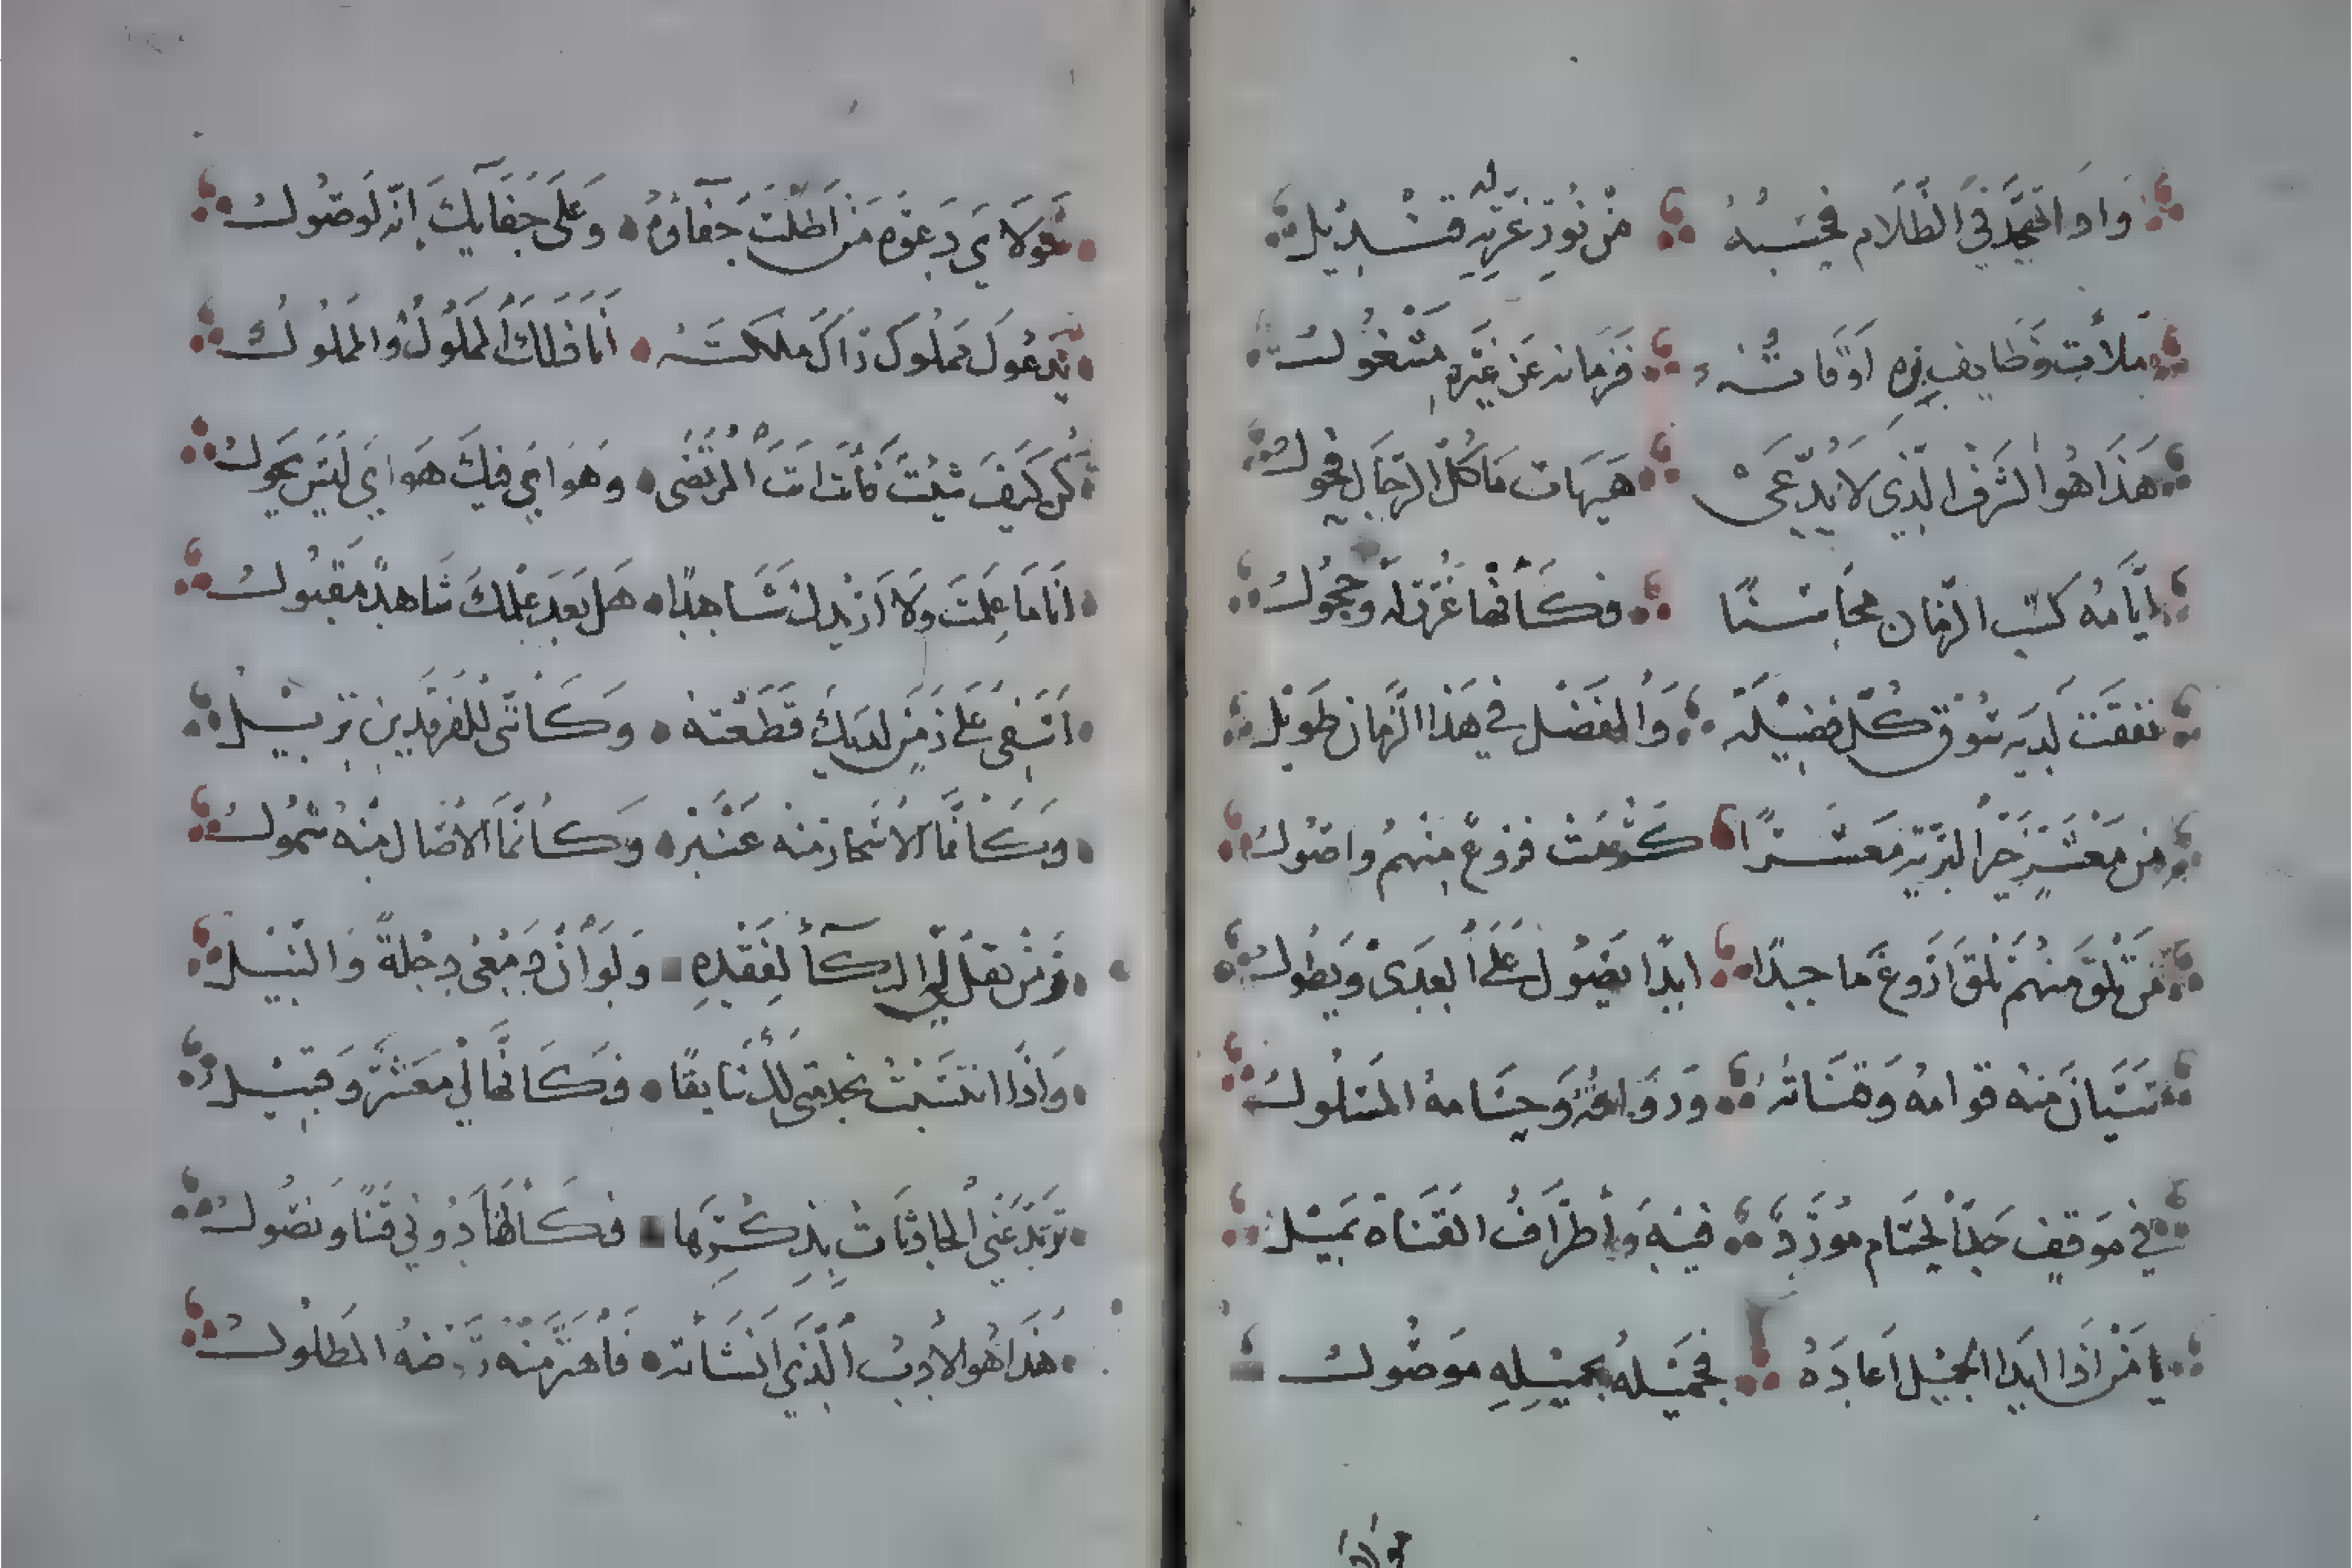 واذا تهجد في الظلام فحسبه من نور غرته له قنديل
ملأت وظايف بره اوقاته فزمانه عن غيره مشغول
هَذَا هُوَ الشرف الّذي لا يدّعى هَيهَات مَا كلّ الرجَال فحول
ايّامه كست الزمان محاسنا فكأنها غرر له وحجول
نفقت لديه سوق كل فضيلة وَالفضل في هذا الزمان طويل
من معشر خير البرية معشرًا كرمت فروع منهم واصول
من تلق منهم تلق اروع ماجدًا ابدًا يصول على العدى ويطول
سيّان منه قوامه وقناته ورواؤه وحسامه المسلول
في موقف خدّ الحسام مورّد فيه وأطراف القناة تميل
يا من اذا ابدا الجميل اعاده فجميله بجميله موصول
مولاي
مولاي دعوة من اطلت جفاؤه وعلى جفايك انه لوصول
يدعوك مملوك ذاك ملكته أنا ذلك المملول والمملوك
كن كيف شئت فأنت انت المرتضى وهواي فيك هواي ليس يحول
انا ما علمت ولا ازيدك شاهدًا هل بعد علمك شاهد مقبول
اسفي على زمن لديك قطعته وكأنني للفرقدين نزيل
وكأنما الاسحار منه عنبر وكأنما الاصال منه شمول
زمن يقلّ لي البكاء لفقده ولو أن دمعي دجلة والنيل
واذا انتسبت بخدمتي لك سابقًا فكأنها لي معشر وقبيل
ترتد عني الحادثات بذكرها فكأنها دوني قنًا ونصول
هذا هو الادب الّذي انشأته فاهتزّ منه روضه المطلول